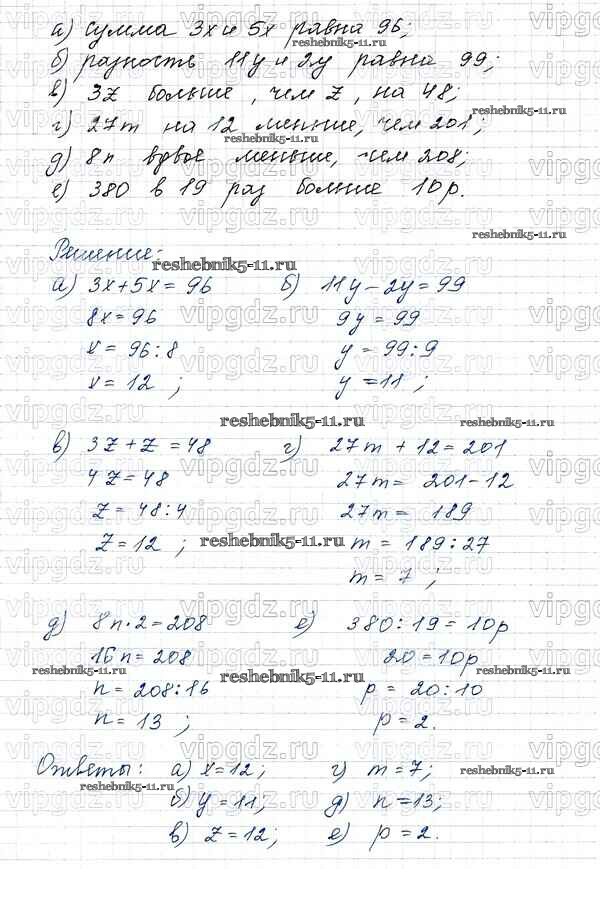 а) сумма 3x и 5x равна 96;
б) разность 11y и 2y равна 99;
в) 3z больше, чем z, на 48;
г) 27m на 12 меньше, чем 201;
д) 8n вдвое меньше, чем 208;
е) 380 в 19 раз больше 10p.
Решение:
а) 3x+5x=96 б) 11y-2y=99
8x=96 9y=99
x=96:8 y=99:9
x=12; y=11;
в) 3z+z=48 г) 27m+12=201
4z=48 27m=201-12
z=48:4 27m=189
z=12; m=189:27
m=7;
д) 8n·2=208 е) 380:19=10p
16n=208 20=10p
n=208:16 p=20:10
n=13; p=2.
Ответы: а) x=12; г) m=7;
б) y=11; д) n=13;
в) z=12; е) p=2.
reshebnik5-11.ru
vipgdz.ru